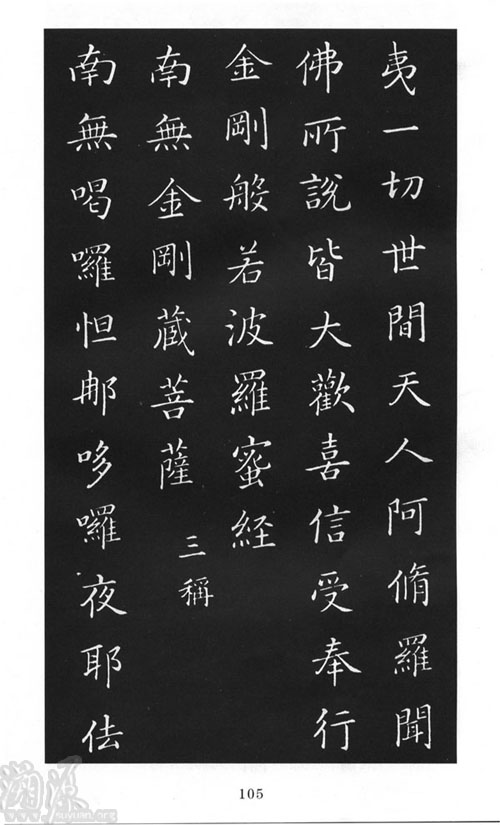 夷一切世間天人阿脩羅聞
佛所說皆大歡喜信受奉行
金剛般若波羅蜜經
南無金剛藏菩薩 三稱
南無喝囉怛那哆囉夜耶佉
105
suyuan.org